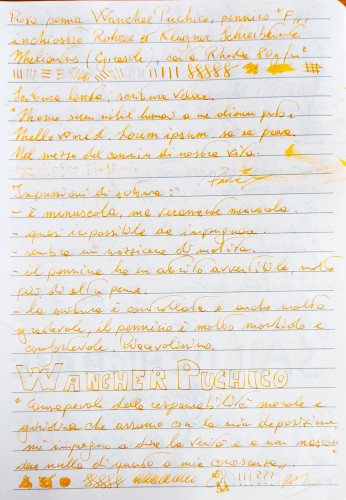 Posso penna Wancher Puchico, pennino "F",
inchiostro Rohrer et Klingner Schreibtinte
Helianthus (Girasole), carta Rhodia 80g/m²
Scrittura lenta, scrittura veloce.
"Homo sum nihil humani a me alienum puto".
Hello world. Lorem ipsum
Nel mezzo del cammin di nostra vita.
Impressioni di scrittura:
- è minuscola, ma veramente minuscola.
- quasi impossibile da impugnare.
- sembra un mozzicone di matita.
- il pennino ha un attrito avvertibile, molto
più di altre penne.
- la scrittura è controllata e anche molto
gradevole, il pennino è molto morbido e
confortevole. Piacevolissimo.
WANCHER PUCHICO
"Consapevole della responsabilità morale e
giuridica che assumo con la mia deposizione,
mi impegno a dire la verità e a non nascon
dere nulla di quanto a mia conoscenza"